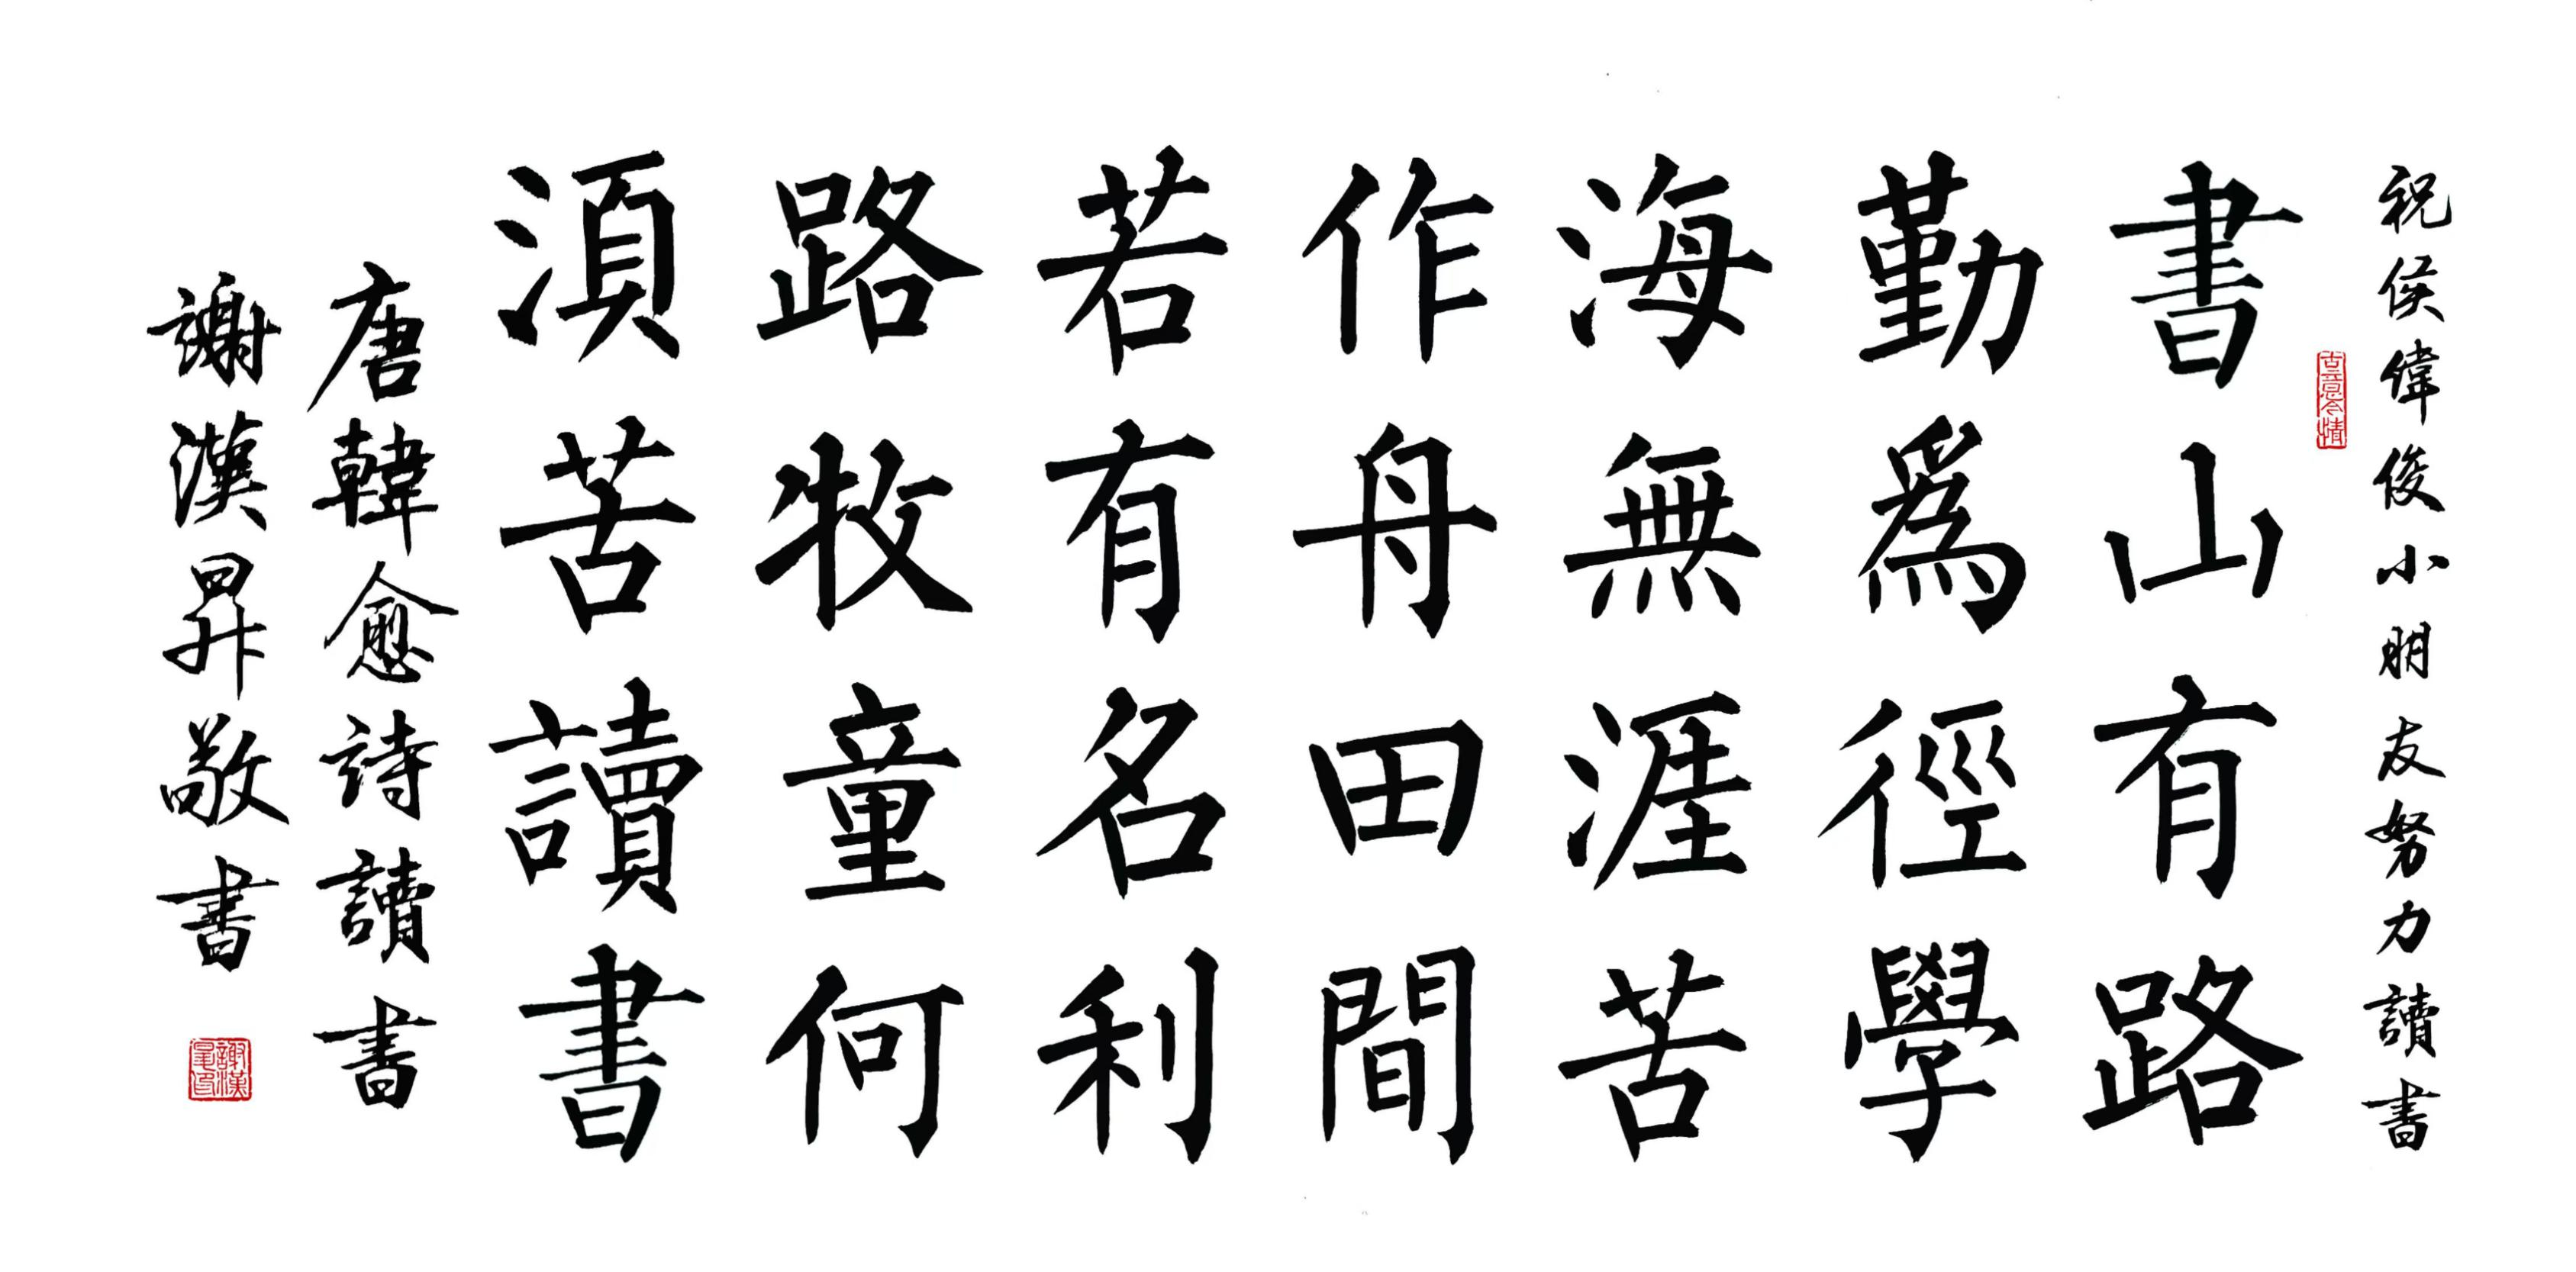 祝侯偉俊小朋友努力讀書
古意今情
書山有路
勤爲徑學
海無涯苦
作舟田間
若有名利
路牧童何
湏苦讀書
唐韓愈詩讀書
謝漢昇敬書
謝漢昇印